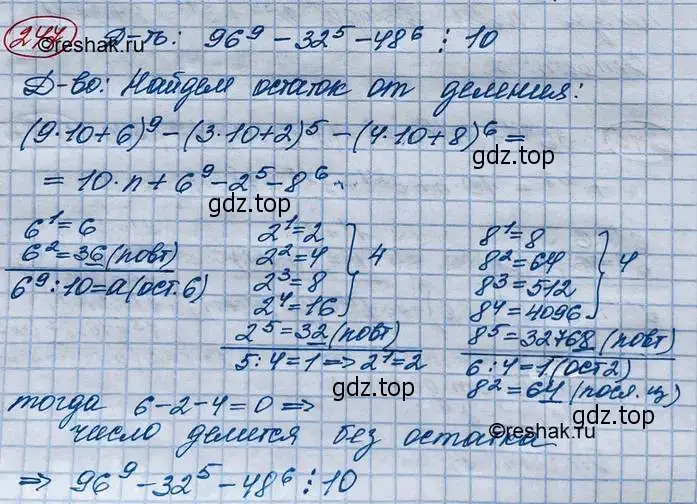 244 © reshak.ru Д-ть: 96⁹ - 32⁵ - 48⁶ ⋮ 10
Д-во: Найдем остаток от деления:
(9·10+6)⁹ - (3·10+2)⁵ - (4·10+8)⁶ =
gdz.top
= 10·n + 6⁹ - 2⁵ - 8⁶.
gdz.top
6¹ = 6
6² = 36 (повт)
6⁹ : 10 = a (ост. 6)
2¹ = 2
2² = 4
2³ = 8
2⁴ = 16
} 4
2⁵ = 32 (повт)
5 : 4 = 1 ⇒ 2¹ = 2
8¹ = 8
8² = 64
8³ = 512
8⁴ = 4096
} 4
8⁵ = 32768 (повт)
6 : 4 = 1 (ост 2)
8² = 64 (посл. ц)
gdz.top
gdz.top
gdz.top
тогда 6 - 2 - 4 = 0 ⇒
число делится без остатка
© reshak.ru
⇒ 96⁹ - 32⁵ - 48⁶ ⋮ 10
gdz.top